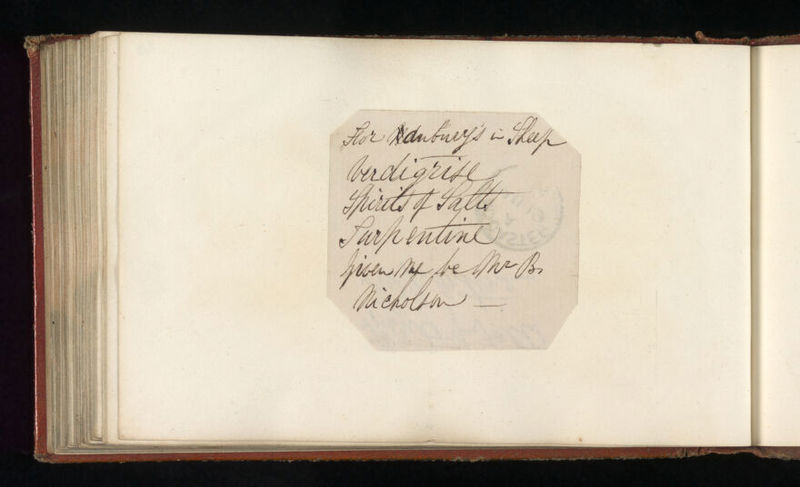 For in Sheep
Verdigrise
Spirits of Salts
Turpentine
given me be Mr B.
Nicholson —